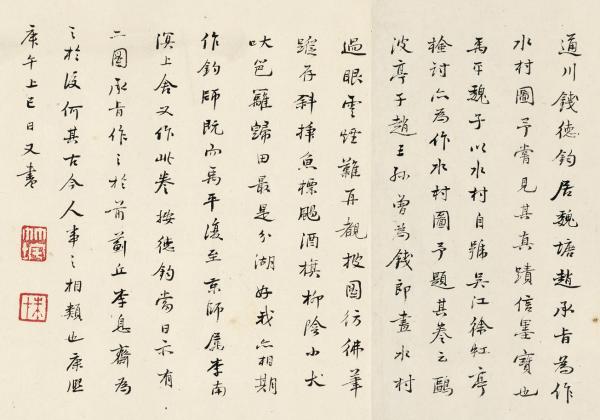 通川錢德鈞居魏塘趙承旨為作
水村圖予嘗見其真蹟信墨寶也
禹平魏子以水村自號吳江徐虹亭
檢討亦為作水村圖予題其卷云鷗
波亭子趙王孫曾為錢郎畫水村
過眼雲煙難再覩披圖彷彿筆
蹤存斜揷魚標颺酒旗柳陰小犬
吠笆籬歸田最是分湖好我亦相期
作釣師既而禹平復至京師屬李南
溟上舍又作此卷按德鈞當日亦有
二圖承旨作之於前薊丘李息齋為
之於後何其古今人事之相類也康熙
庚午上巳日又書